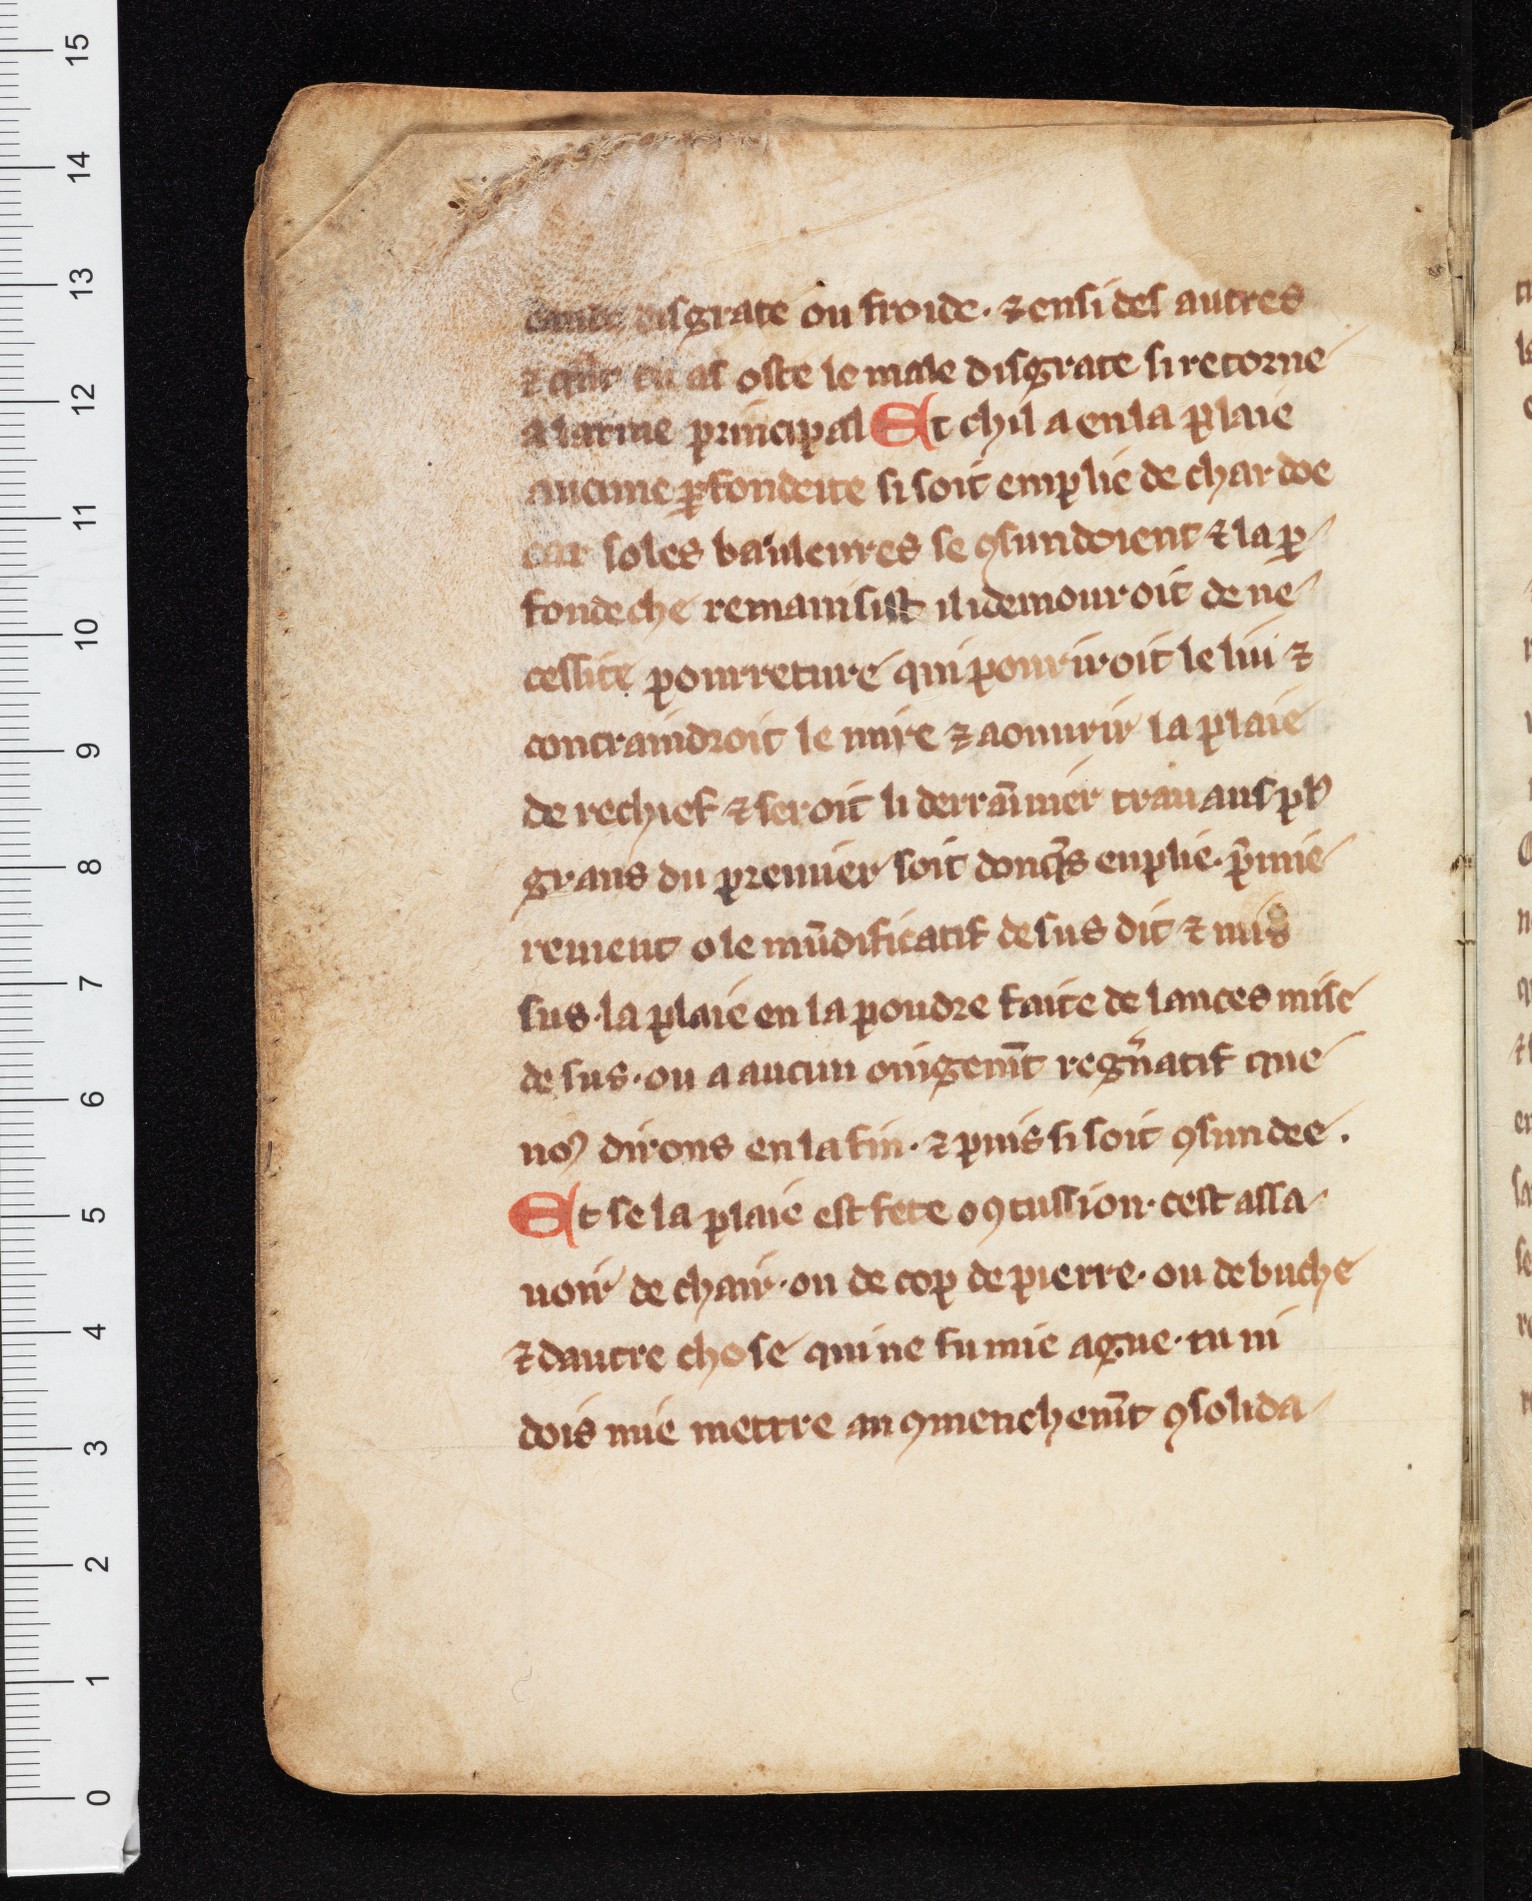 caude disgrate ou froide · ⁊ ensi des autres
⁊ qnt tu as oste le male disgrate si retorne
a larme principal Et chil a en la plaie
aucune ꝓfondeite si soit emplie de char doe
car so les bauleures se ꝯsundoient ⁊ la ꝓ
fondeche remainsist il i demouroit de ne
cessite pourreture qui pouriroit le liu ⁊
contraindroit le mire ⁊ aouurir la plaie
de rechief ⁊ seroit li derrāmier trauaus plꝰ
grans du premier soit doncqs enplie · p̄mie
rement o le mūdificatif desus dit ⁊ mis
sus · la plaie en la poudre faite de lances mise
de sus · ou a aucun onigem̄t regn̄atif que
noꝰ dirons en la fin · ⁊ puis si soit ꝯsundee .
Et se la plaie est fete o ꝯtussion · cest assa
uoir de chair · ou de cop de pierre · ou de buche
⁊ dautre chose qui ne fu mie ague · tu ni
dois mie mettre au ꝯmenchem̄t ꝯsolida
15
14
13
12
11
10
9
8
7
6
5
4
3
2
1
0